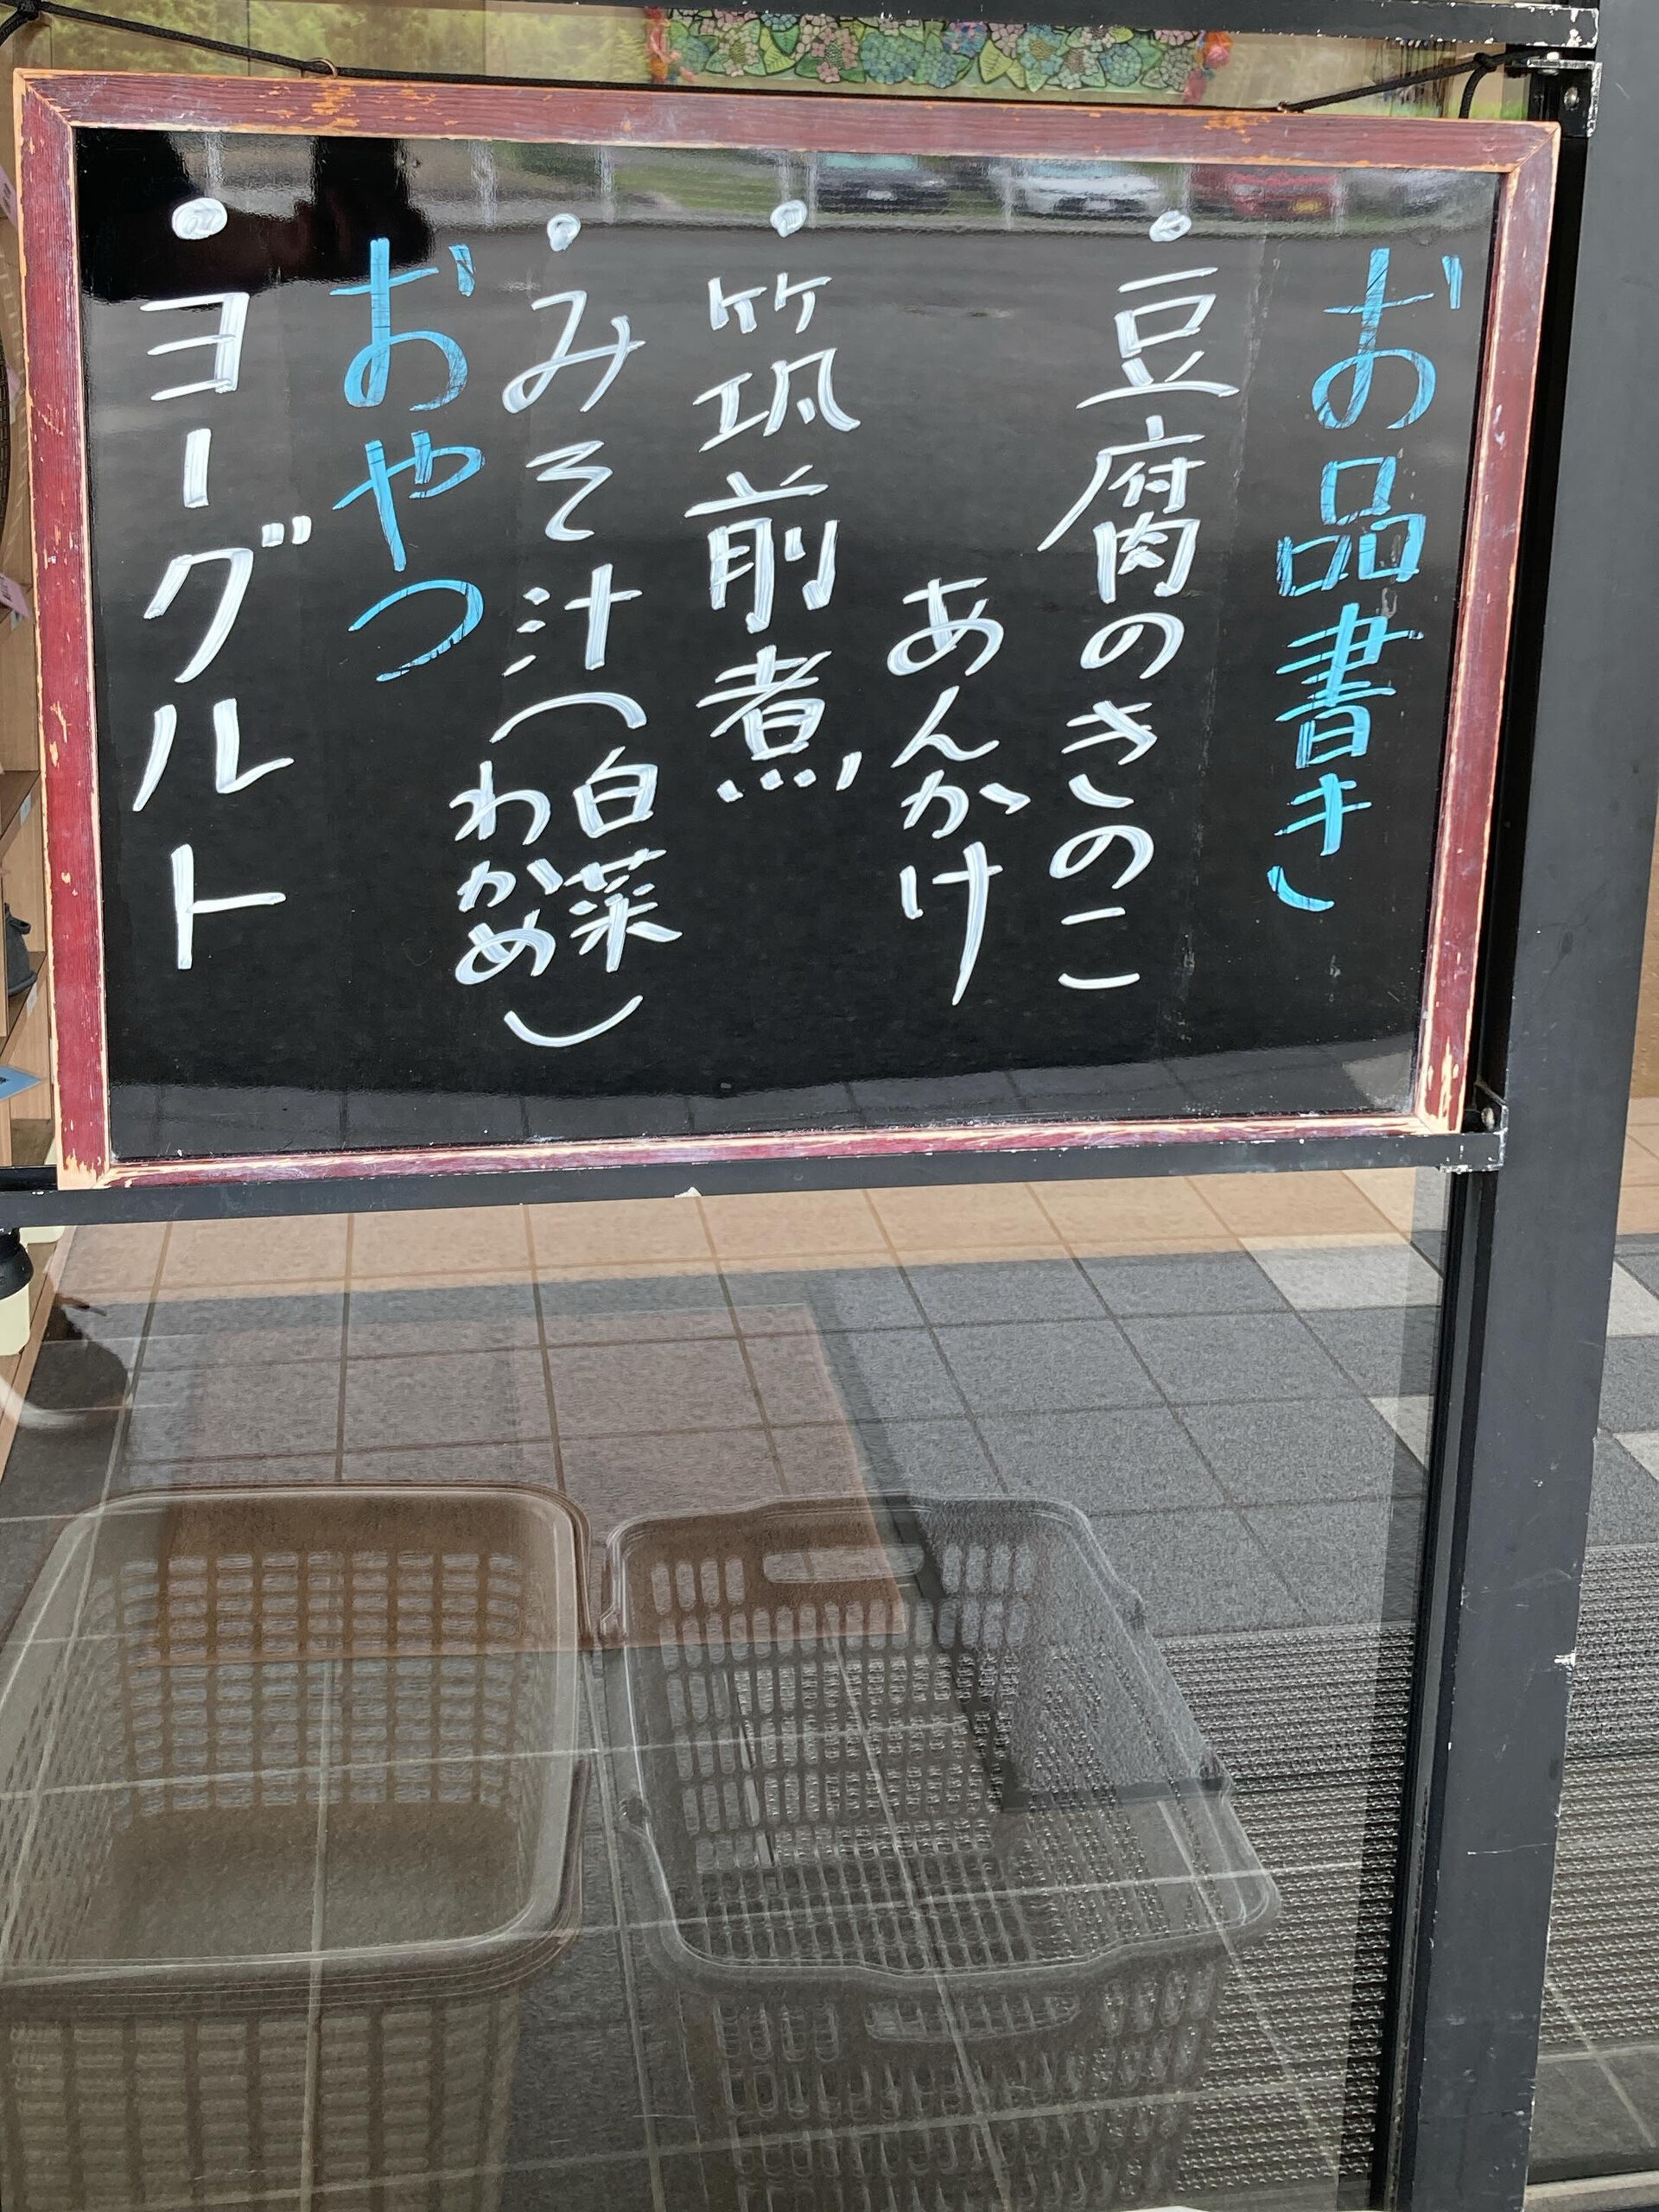 お品書き
・豆腐のきのこ
あんかけ
・筑前煮
・みそ汁(白菜
わかめ)
おやつ
・ヨーグルト